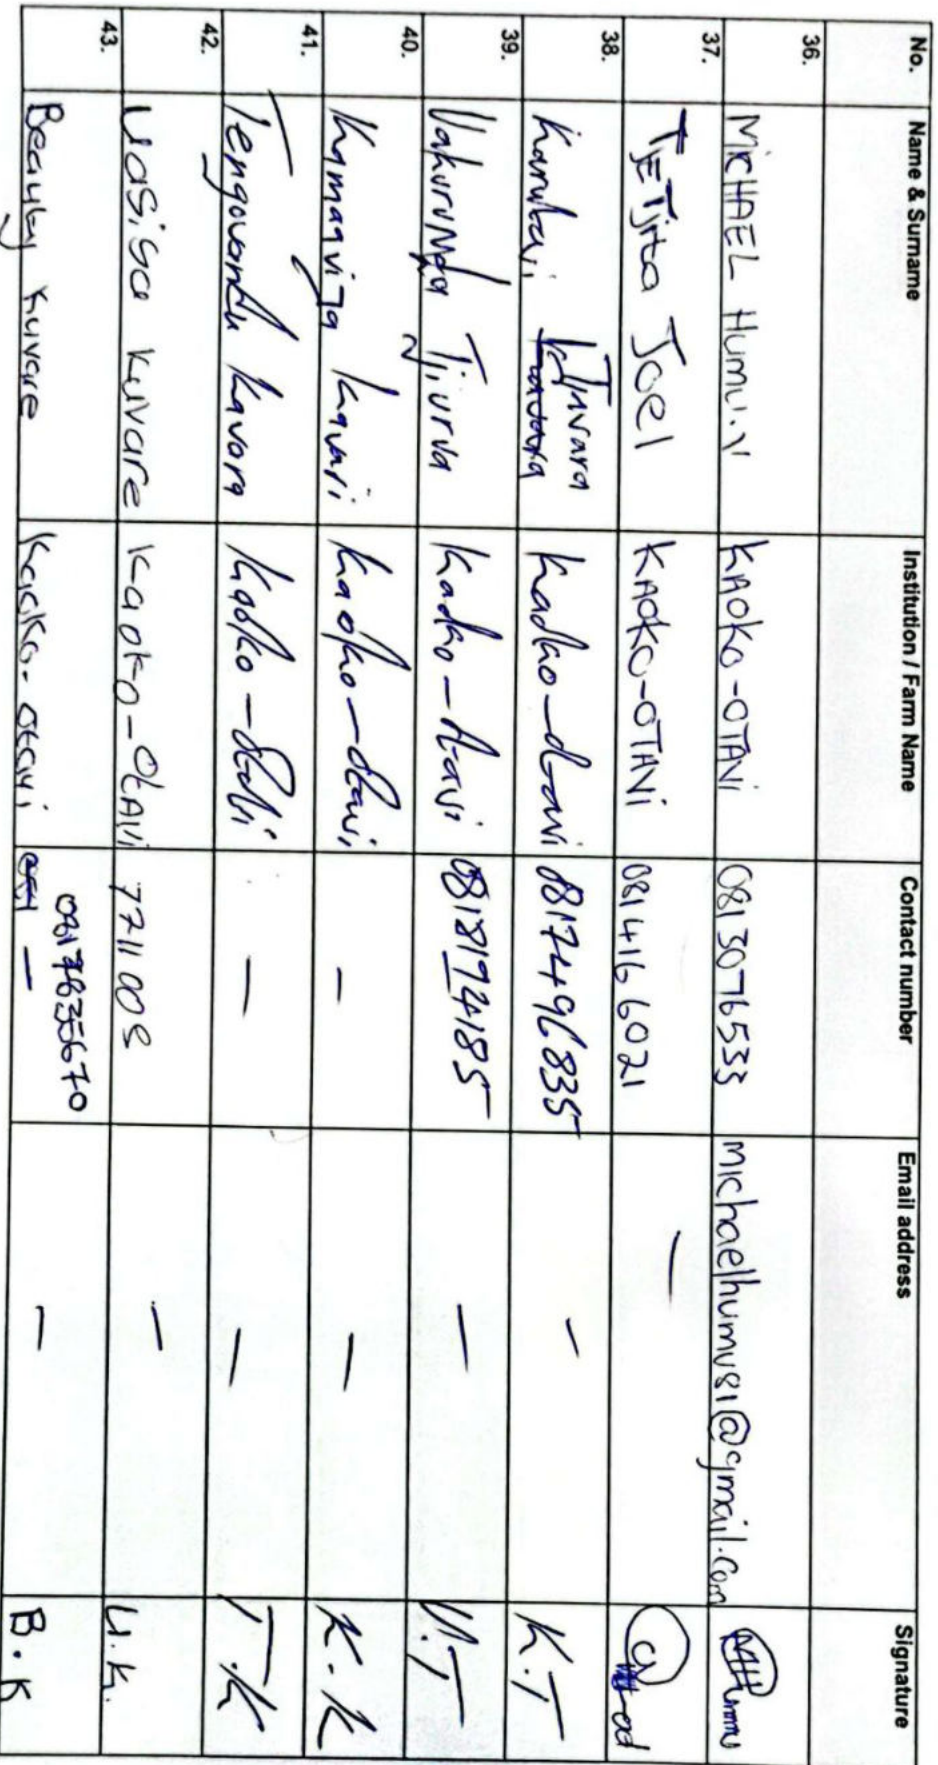 No. Name & Surname Institution / Farm Name Contact number Email address Signature
36. MICHAEL HUMU KAOKO-OTAVi 0813076533 michaelhumu81@gmail.com
37. TJETJITA JOEL KAOKO-OTAVi 0814166021 —
38. Karutjaii Tjivara Kaoko-otavi 0817496835 — K.T
39. Vakurumba Tjiurva Kaoko-otavi 0818192485 — U.T
40. Kamaavija Kavari Kaoko-otavi — — K.K
41. Tengovandu Kavara Kaoko-otavi — — T.K
42. Uasisa Kuvare Kaoko-OtAvi 7711008 — U.K.
43. Beauty Kuvare Kaoko-otavi 0817835670 — — B.K